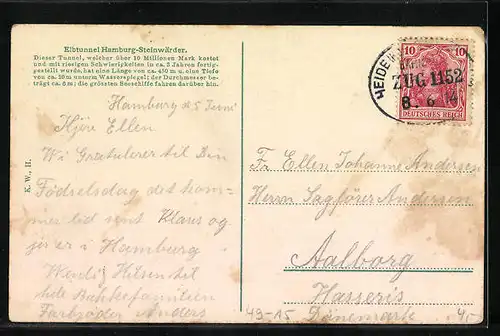 Elbtunnel Hamburg-Steinwärder.
Dieser Tunnel, welcher über 10 Millionen Mark kostet
und mit riesigen Schwierigkeiten in ca. 3 Jahren fertig-
gestellt wurde, hat eine Länge von ca. 450 m u. eine Tiefe
von ca. 20 m unterm Wasserspiegel; der Durchmesser be-
trägt ca. 6 m; die grössten Seeschiffe fahren darüber hin.
K. W., H.
Hamburg d 5 Juni
Kjære Ellen
Wi Gratulerer til Din
Fødselsdag det kom-
mer lid sent Klaus og
jeg er i Hamburg
Venlig Hilsen til
hele
Anders
10 10
DEUTSCHES REICH
ZUG 1152
8 6 14
Fr Ellen Johanne Andersen
Herrn Sagfører Andersen
Aalborg
Hasseris
Dänemark
49-15